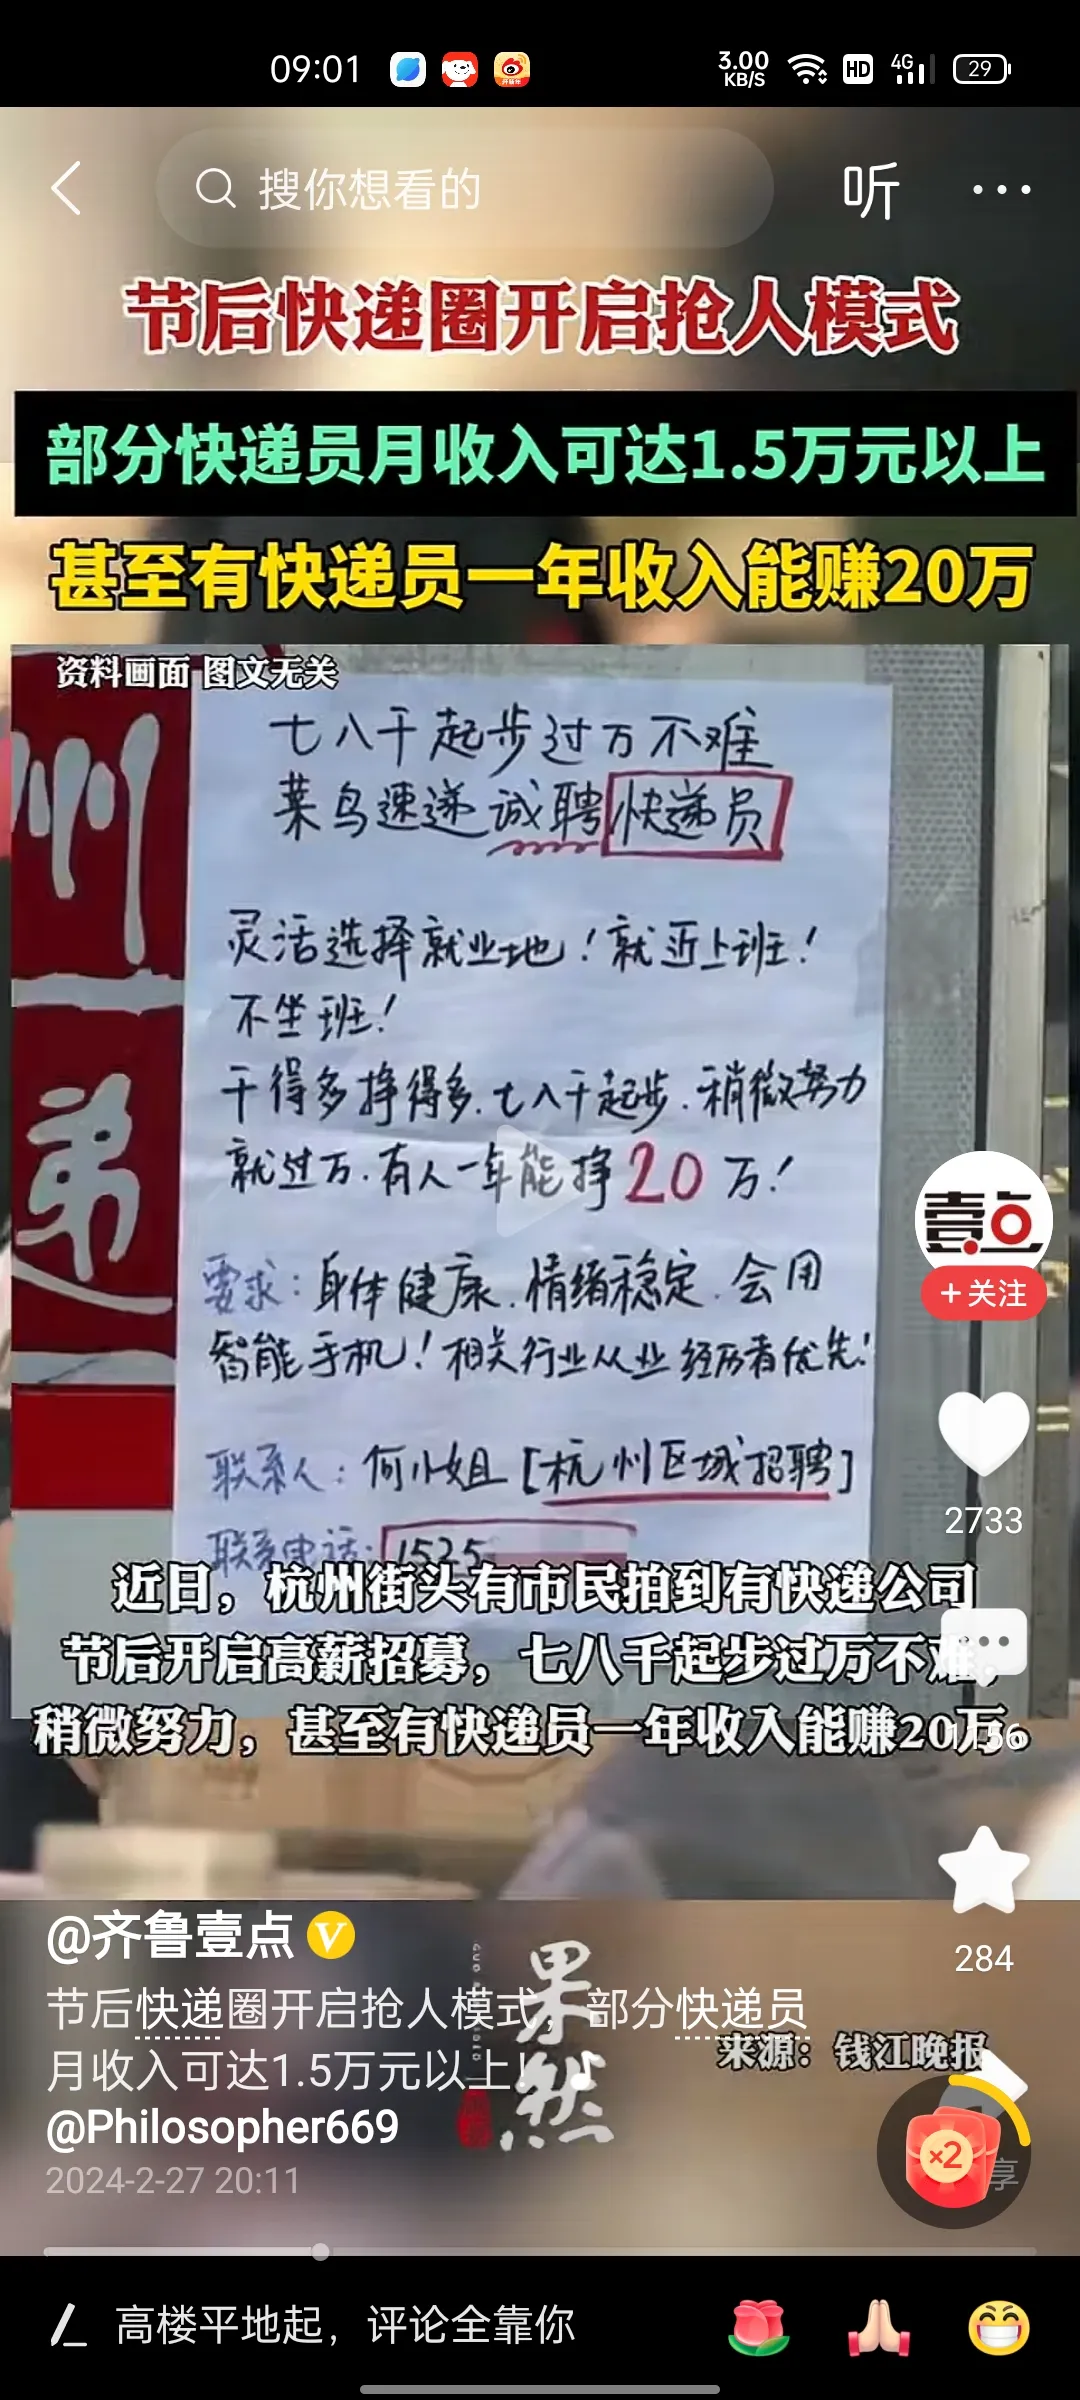 09:01
3.00
KB/S
HD
4G
29
搜你想看的
听
节后快递圈开启抢人模式
部分快递员月收入可达1.5万元以上
甚至有快递员一年收入能赚20万
资料画面 图文无关
州
递
七八千起步过万不难
菜鸟速递诚聘快递员
灵活选择就业地！就近上班！
不坐班！
干得多挣得多.七八千起步.稍微努力
就过万.有人一年能挣20万！
要求：身体健康.情绪稳定.会用
智能手机！相关行业从业经历者优先！
联系人：何小姐[杭州区域招聘]
联系电话：1525
壹点
+关注
2733
近日，杭州街头有市民拍到有快递公司
节后开启高薪招募，七八千起步过万不难，
稍微努力，甚至有快递员一年收入能赚20万。
1156
284
@齐鲁壹点
V
果然
节后快递圈开启抢人模式，部分快递员
月收入可达1.5万元以上！
来源：钱江晚报
@Philosopher669
×2
享
2024-2-27 20:11
高楼平地起，评论全靠你